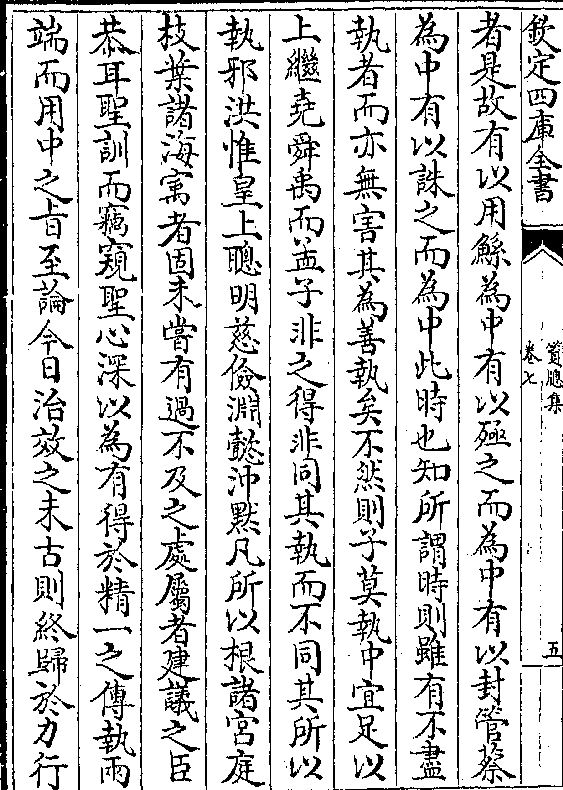 欽定四庫全書
篔牕集
卷七
五
者是故有以用鯀為中有以殛之而為中有以封管蔡
為中有以誅之而為中此時也知所謂時則雖有不盡
執者而亦無害其為善執矣不然則子莫執中宜足以
上繼堯舜禹而孟子非之得非同其執而不同其所以
執邪洪惟皇上聰明慈儉淵懿沖默凡所以根諸宮庭
枝葉諸海㝢者固未嘗有過不及之處屬者建議之臣
恭耳聖訓而竊窺聖心深以為有得於精一之傳執兩
端而用中之㫖至論今日治效之未古則終歸於力行